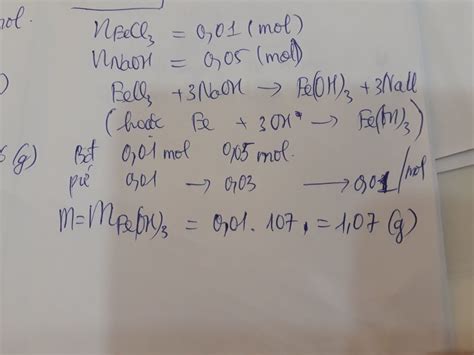 mol.
nFeCl3 = 0,01 (mol)
nNaOH = 0,05 (mol)
FeCl3 + 3NaOH → Fe(OH)3 + 3NaCl
(hoặc Fe + 3OH- → Fe(OH)3)
(g) Bđ 0,01 mol 0,05 mol.
pứ 0,01 → 0,03 → 0,01 mol
m = mFe(OH)3 = 0,01 . 107, = 1,07 (g)